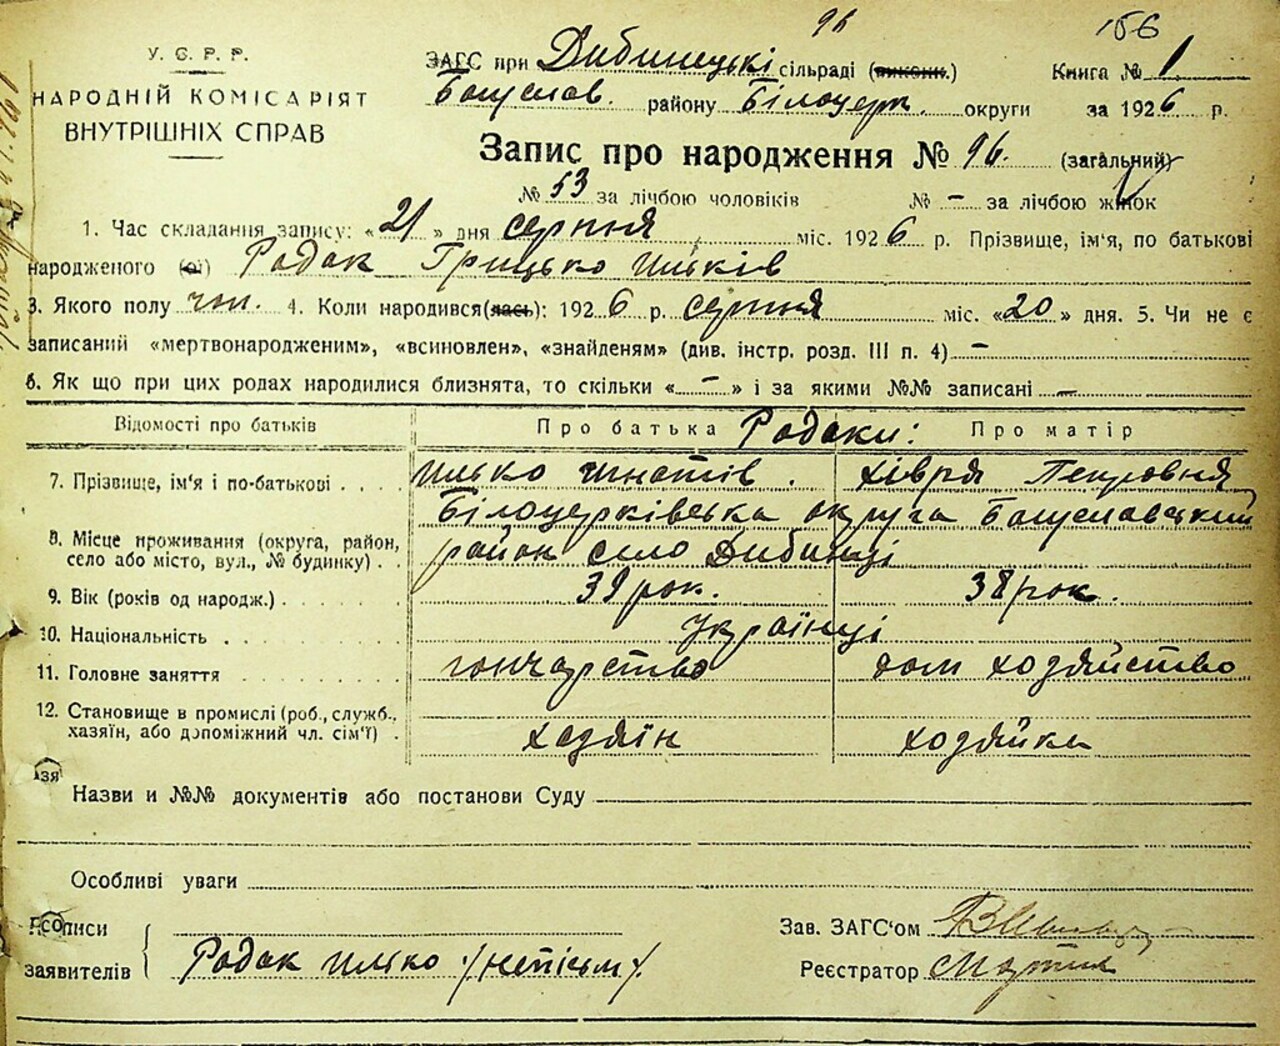 96
156
У. С. Р. Р.
НАРОДНІЙ КОМІСАРІЯТ
ВНУТРІШНІХ СПРАВ
ЗАГС при Дибинецькі сільраді (викони.) Книга № 1
Богуслав. району Білоцерк. округи за 1926 р.
Запис про народження № 96. (загальний)
№ 53 за лічбою чоловіків № – за лічбою жінок
1. Час складання запису: «21» дня серпня міс. 1926 р. Прізвище, ім'я, по батькові
народженого (ої) Родак Грицько Ільків
3. Якого полу чол. 4. Коли народився(лась): 1926 р. серпня міс. «20» дня. 5. Чи не є
записаний «мертвонародженим», «всиновлен», «знайденям» (див. інстр. розд. III п. 4) –
6. Як що при цих родах народилися близнята, то скільки « – » і за якими №№ записані –
Відомості про батьків Про батька Родаки: Про матір
7. Прізвище, ім'я і по-батькові . . . . Ілько Ігнатів. Хівря Петровня
Білоцерківська округа Богуславський
8. Місце проживання (округа, район,
село або місто, вул., № будинку) . . район село Дибинці
9. Вік (років од народж.) . . . . . . 39 рок. 38 рок.
10. Національність . . . . . . . . Українці
11. Головне заняття . . . . . . . гончарство дом хозяйство
12. Становище в промислі (роб., служб.,
хазяїн, або допоміжний чл. сім'ї) . хозяїн хозяйка
зя
Назви и №№ документів або постанови Суду
Особливі уваги
Підписи
заявителів Родак Ілько /непісьм/.
Зав. ЗАГС'ом
Реєстратор